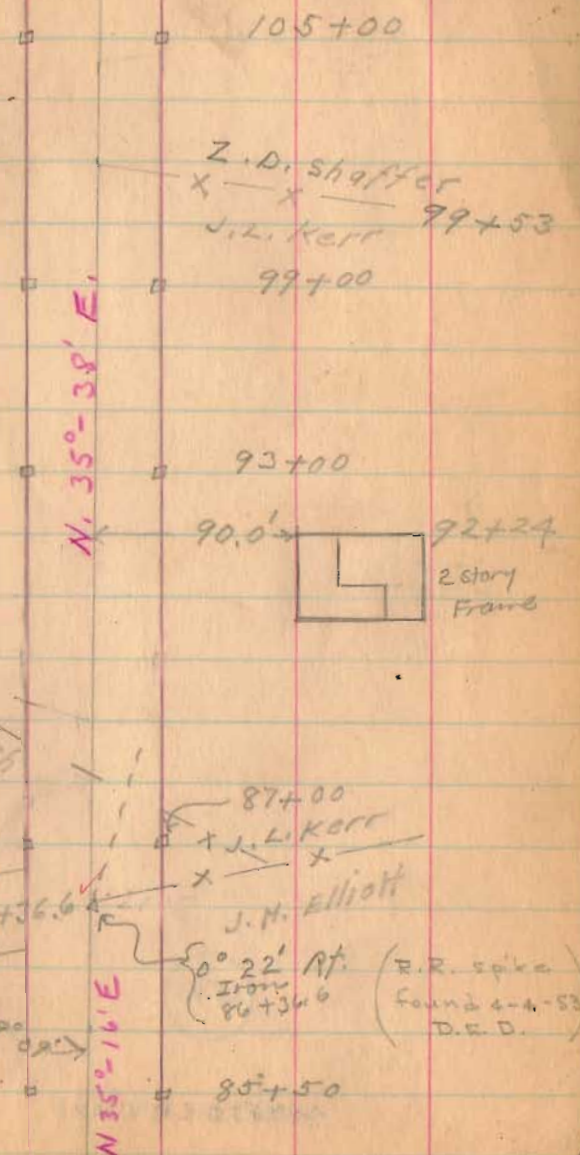 105+00
Z.D. Shaffer
99+53
J.L. Kerr
99+00
N. 35°-38' E.
93+00
90.0'
92+24
2 story
Frame
87+00
J.L. Kerr
+36.6
J.M. Elliott
0° 22' Rt.
Iron
86+36.6
(R.R. spike
found 4-4-53
D.E.D.)
N 35°-16' E
85+50